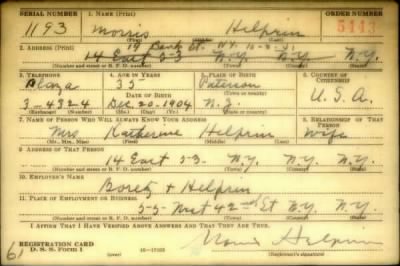 SERIAL NUMBER 1. NAME (Print) ORDER NUMBER
1193 Morris Helprin 5443
(First) (Middle) (Last)
19 Bank St. N.Y.
2. ADDRESS (Print)
14 East 53 N.Y. N.Y. N.Y.
(Number and street or R. F. D. number) (Town) (County) (State)
3. TELEPHONE 4. AGE IN YEARS 5. PLACE OF BIRTH 6. COUNTRY OF CITIZENSHIP
Plaza 35 Paterson
DATE OF BIRTH
3-4324 Dec. 20-1904 N.J. U.S.A.
(Exchange) (Number) (Mo.) (Day) (Yr.) (State or country)
7. NAME OF PERSON WHO WILL ALWAYS KNOW YOUR ADDRESS 8. RELATIONSHIP OF THAT PERSON
Mrs Katherine Helprin Wife
(Mr., Mrs., Miss) (First) (Middle) (Last)
9. ADDRESS OF THAT PERSON
14 East 53. N.Y. N.Y. N.Y.
(Number and street or R. F. D. number) (Town) (County) (State)
10. EMPLOYER'S NAME
Boretz + Helprin
11. PLACE OF EMPLOYMENT OR BUSINESS
55 West 42nd St N.Y. N.Y.
(Number and street or R. F. D. number) (Town) (County) (State)
I AFFIRM THAT I HAVE VERIFIED ABOVE ANSWERS AND THAT THEY ARE TRUE.
REGISTRATION CARD
D. S. S. Form 1 Morris Helprin
(Registrant's signature)